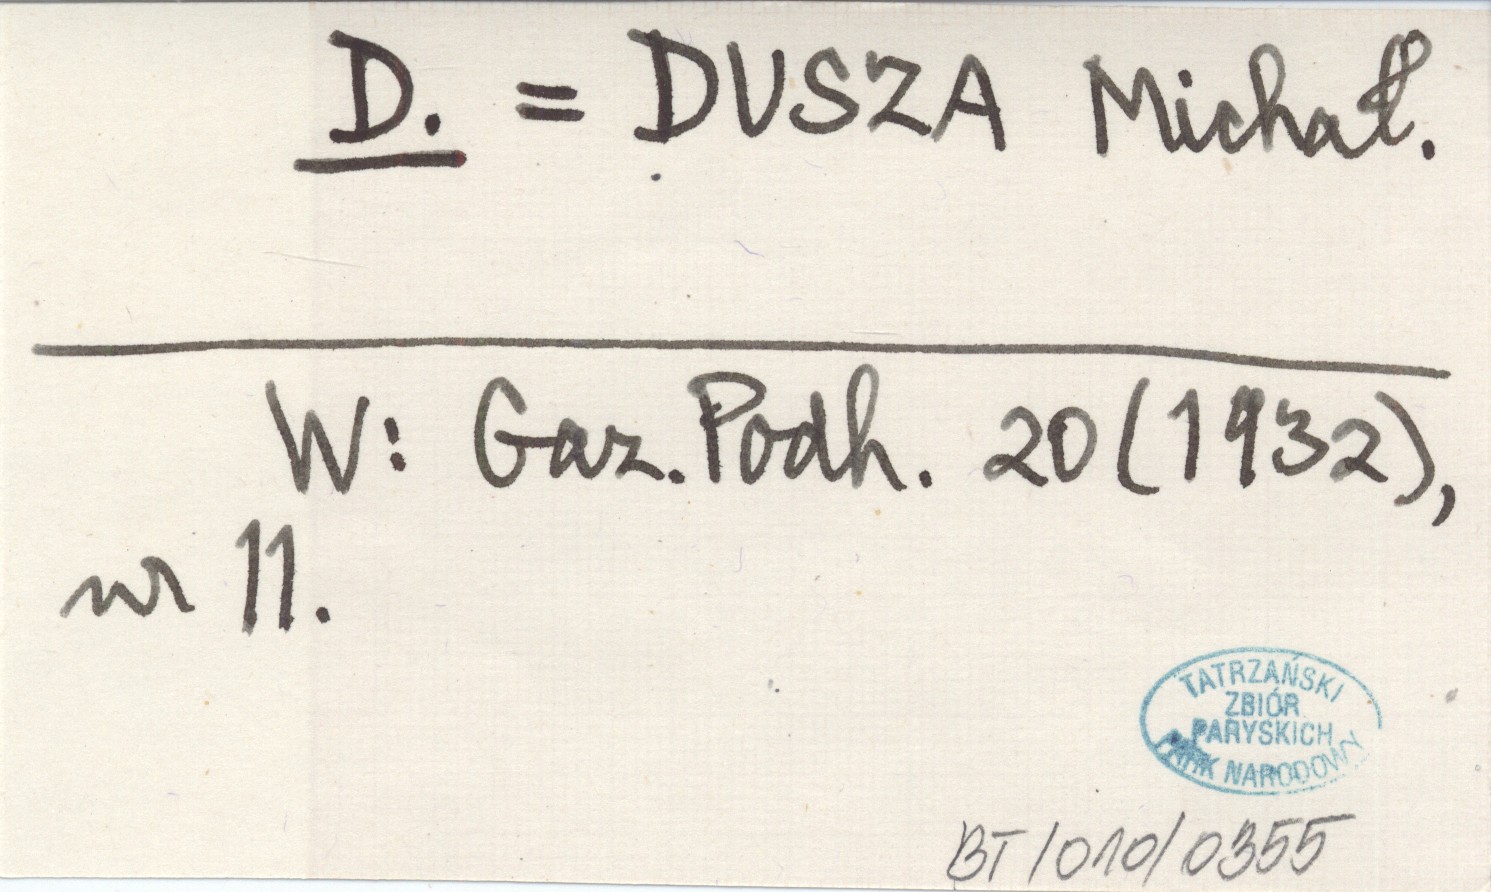 D. = DUSZA Michał.
W: Gaz. Podh. 20 (1932),
nr 11.
TATRZAŃSKI
ZBIÓR
PARYSKICH
PARK NARODOWY
BT/010/0355